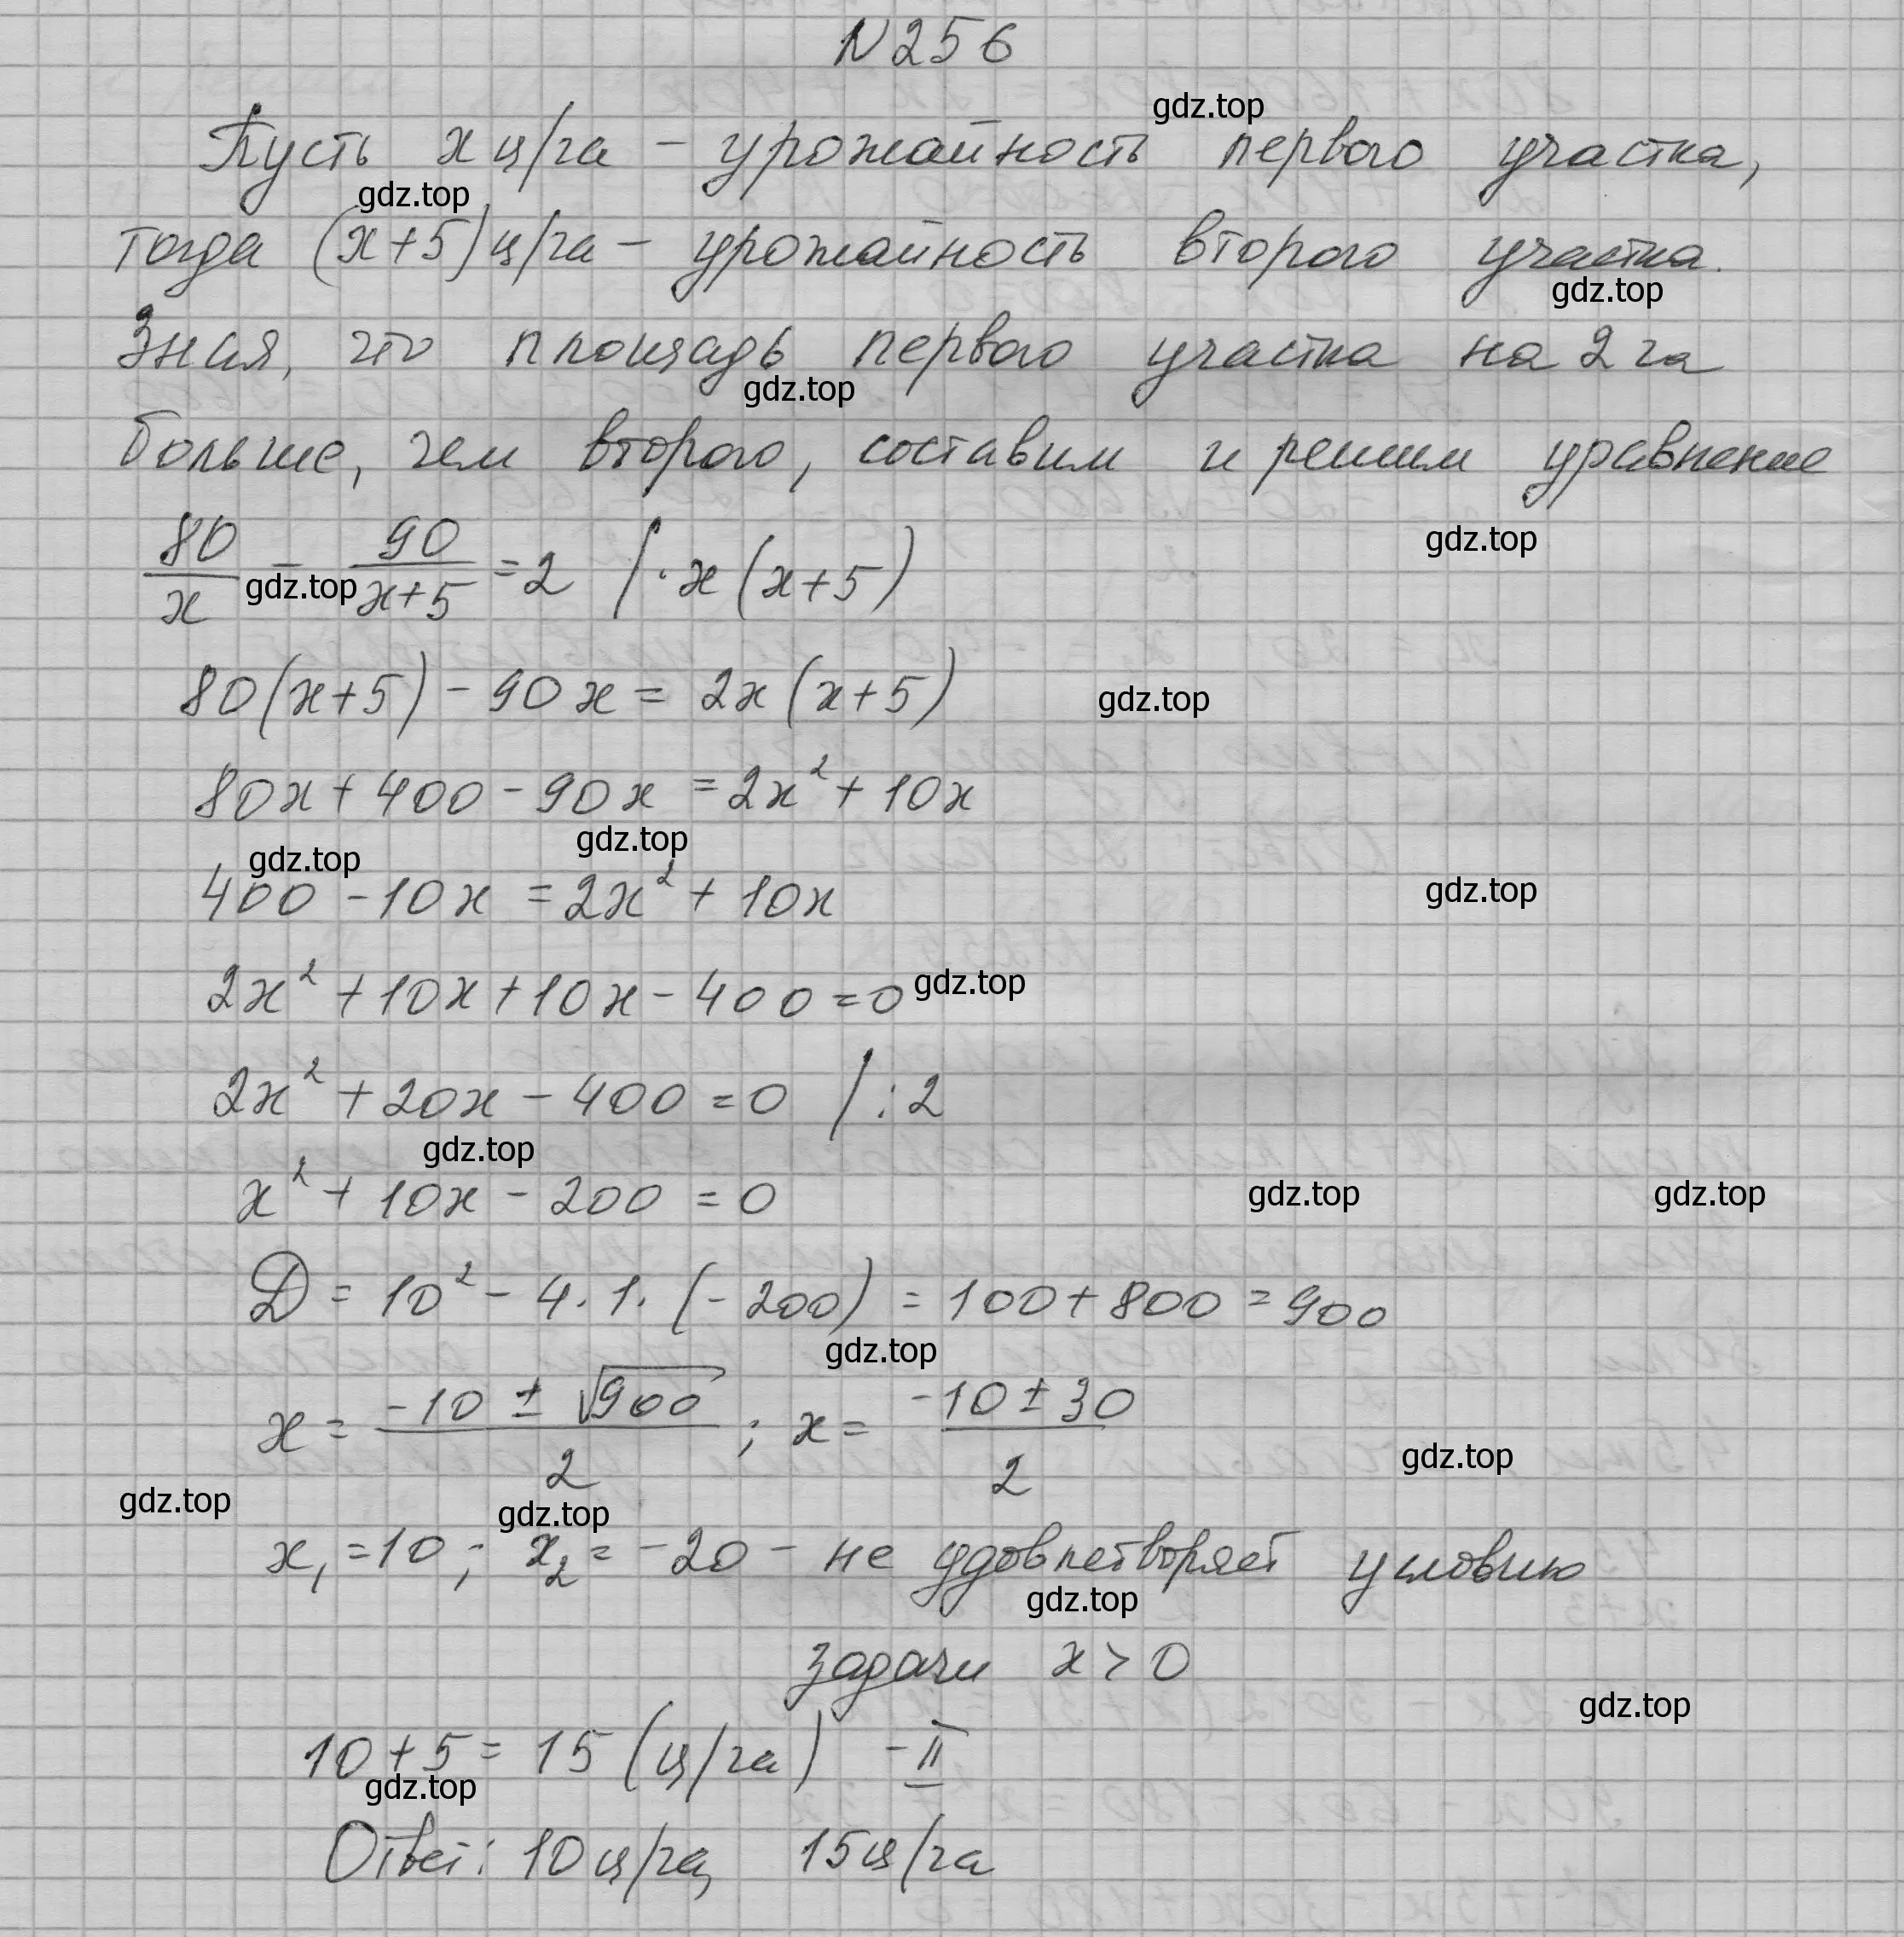 N256
gdz.top
Пусть x ц/га - урожайность первого участка,
gdz.top
тогда (x+5) ц/га - урожайность второго участка.
gdz.top
Зная, что площадь первого участка на 2 га
gdz.top
больше, чем второго, составим и решим уравнение
gdz.top
80/x - 90/(x+5) = 2 / · x(x+5)
gdz.top
80(x+5) - 90x = 2x(x+5)
gdz.top
80x + 400 - 90x = 2x² + 10x
gdz.top gdz.top
400 - 10x = 2x² + 10x
gdz.top
2x² + 10x + 10x - 400 = 0
gdz.top
2x² + 20x - 400 = 0 / : 2
gdz.top
x² + 10x - 200 = 0
gdz.top gdz.top
D = 10² - 4 · 1 · (-200) = 100 + 800 = 900
gdz.top
x = (-10 ± √900)/2 ; x = (-10 ± 30)/2
gdz.top
gdz.top gdz.top
x₁ = 10 ; x₂ = -20 - не удовлетворяет условию
gdz.top
задачи x > 0
gdz.top
10 + 5 = 15 (ц/га) - II
gdz.top
Ответ: 10 ц/га, 15 ц/га